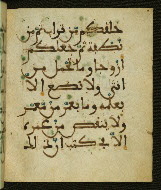 خلقكم من تراب ثم من
نطفة ثم جعلكم
أزوجا وما تحمل من
أنثى ولا تضع إلا
بعلمه وما يعمر من معمر
ولا ينقص من عمره
إلا في كتب إن ذلك